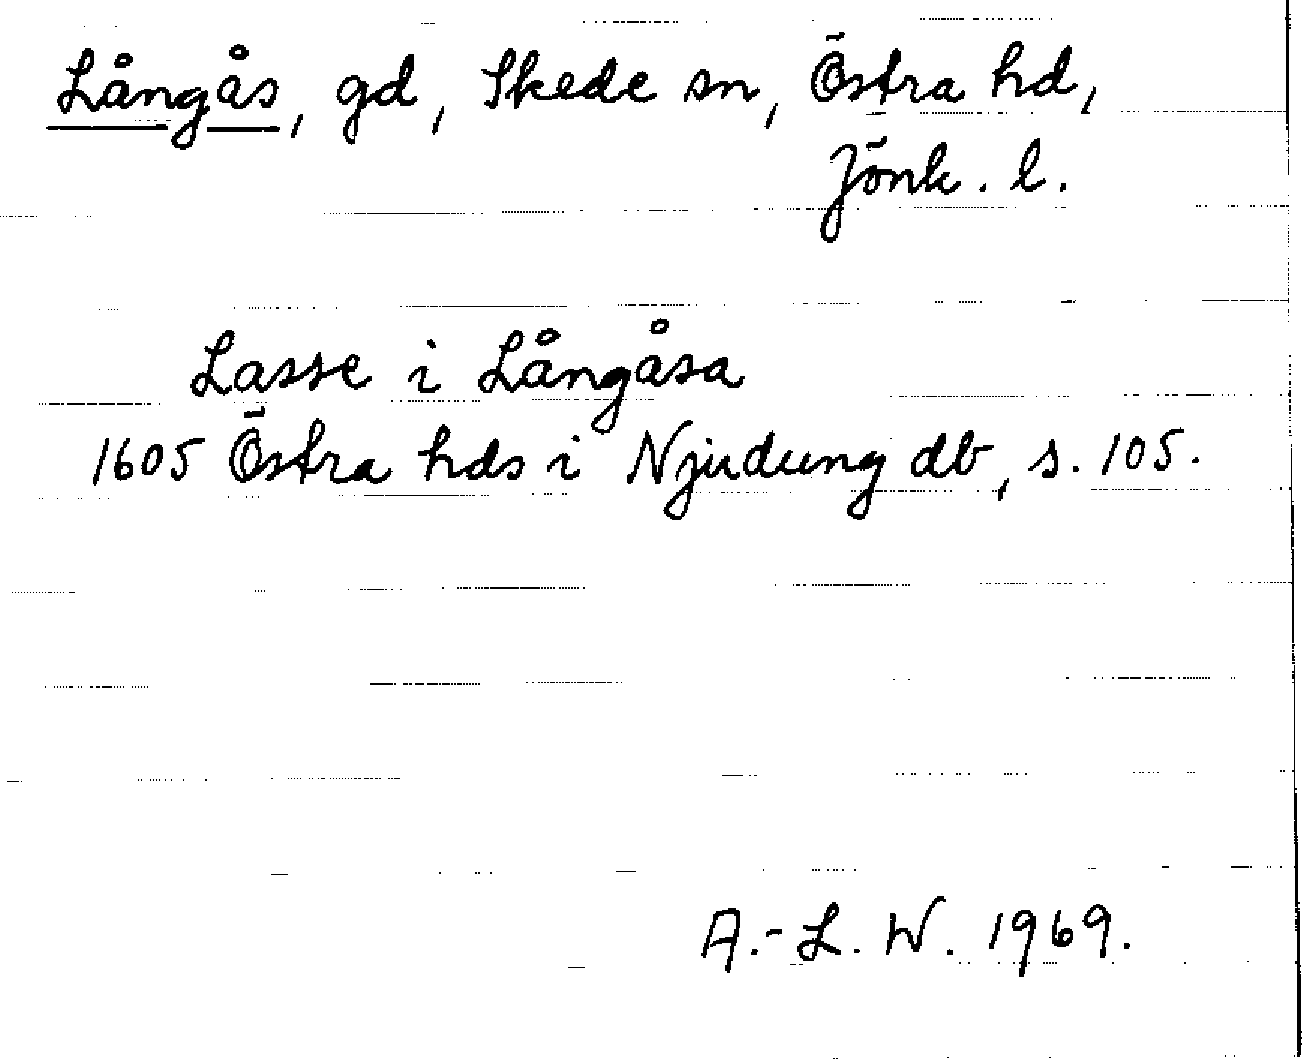 Långås, gd, Skede sn, Östra hd,
Jönk. l.
Lasse i Långåsa
1605 Östra hds i Njudung db, s. 105.
A.-L. W. 1969.